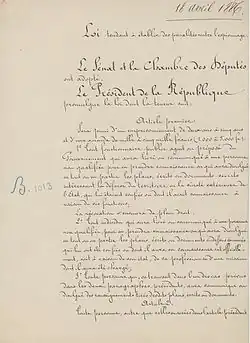 18 avril 1886
Loi tendant à établir des pénalités contre l'espionnage.
Le Sénat et la Chambre des Députés
ont adopté,
Le Président de la République
promulgue la loi dont la teneur suit :
Article premier.
Sera puni d'un emprisonnement de deux ans à cinq ans
et d'une amende de mille à cinq mille francs (1,000 à 5,000 fr.) :
1° Tout fonctionnaire public, agent ou préposé du
Gouvernement qui aura livré ou communiqué à une personne
non qualifiée pour en prendre connaissance, ou qui aura divulgué
en tout ou en partie les plans, écrits ou documents secrets
intéressant la défense du territoire ou la sûreté extérieure de
l'État, qui lui étaient confiés ou dont il avait connaissance à
raison de ses fonctions.
La révocation s'ensuivra de plein droit ;
B. 1013
2° Tout individu qui aura livré ou communiqué à une personne
non qualifiée pour en prendre connaissance ou qui aura divulgué
en tout ou en partie les plans, écrits ou documents ci-dessus énoncés
qui lui ont été confiés ou dont il aura eu connaissance soit officielle-
ment, soit à raison de son état, de sa profession ou d'une mission
dont il aura été chargé ;
3° Toute personne qui, se trouvant dans l'un des cas prévus
dans les deux paragraphes précédents, aura communiqué ou
divulgué des renseignements tirés desdits plans, écrits ou documents.
Article 2.
Toute personne, autre que celles énoncées dans l'article précédent